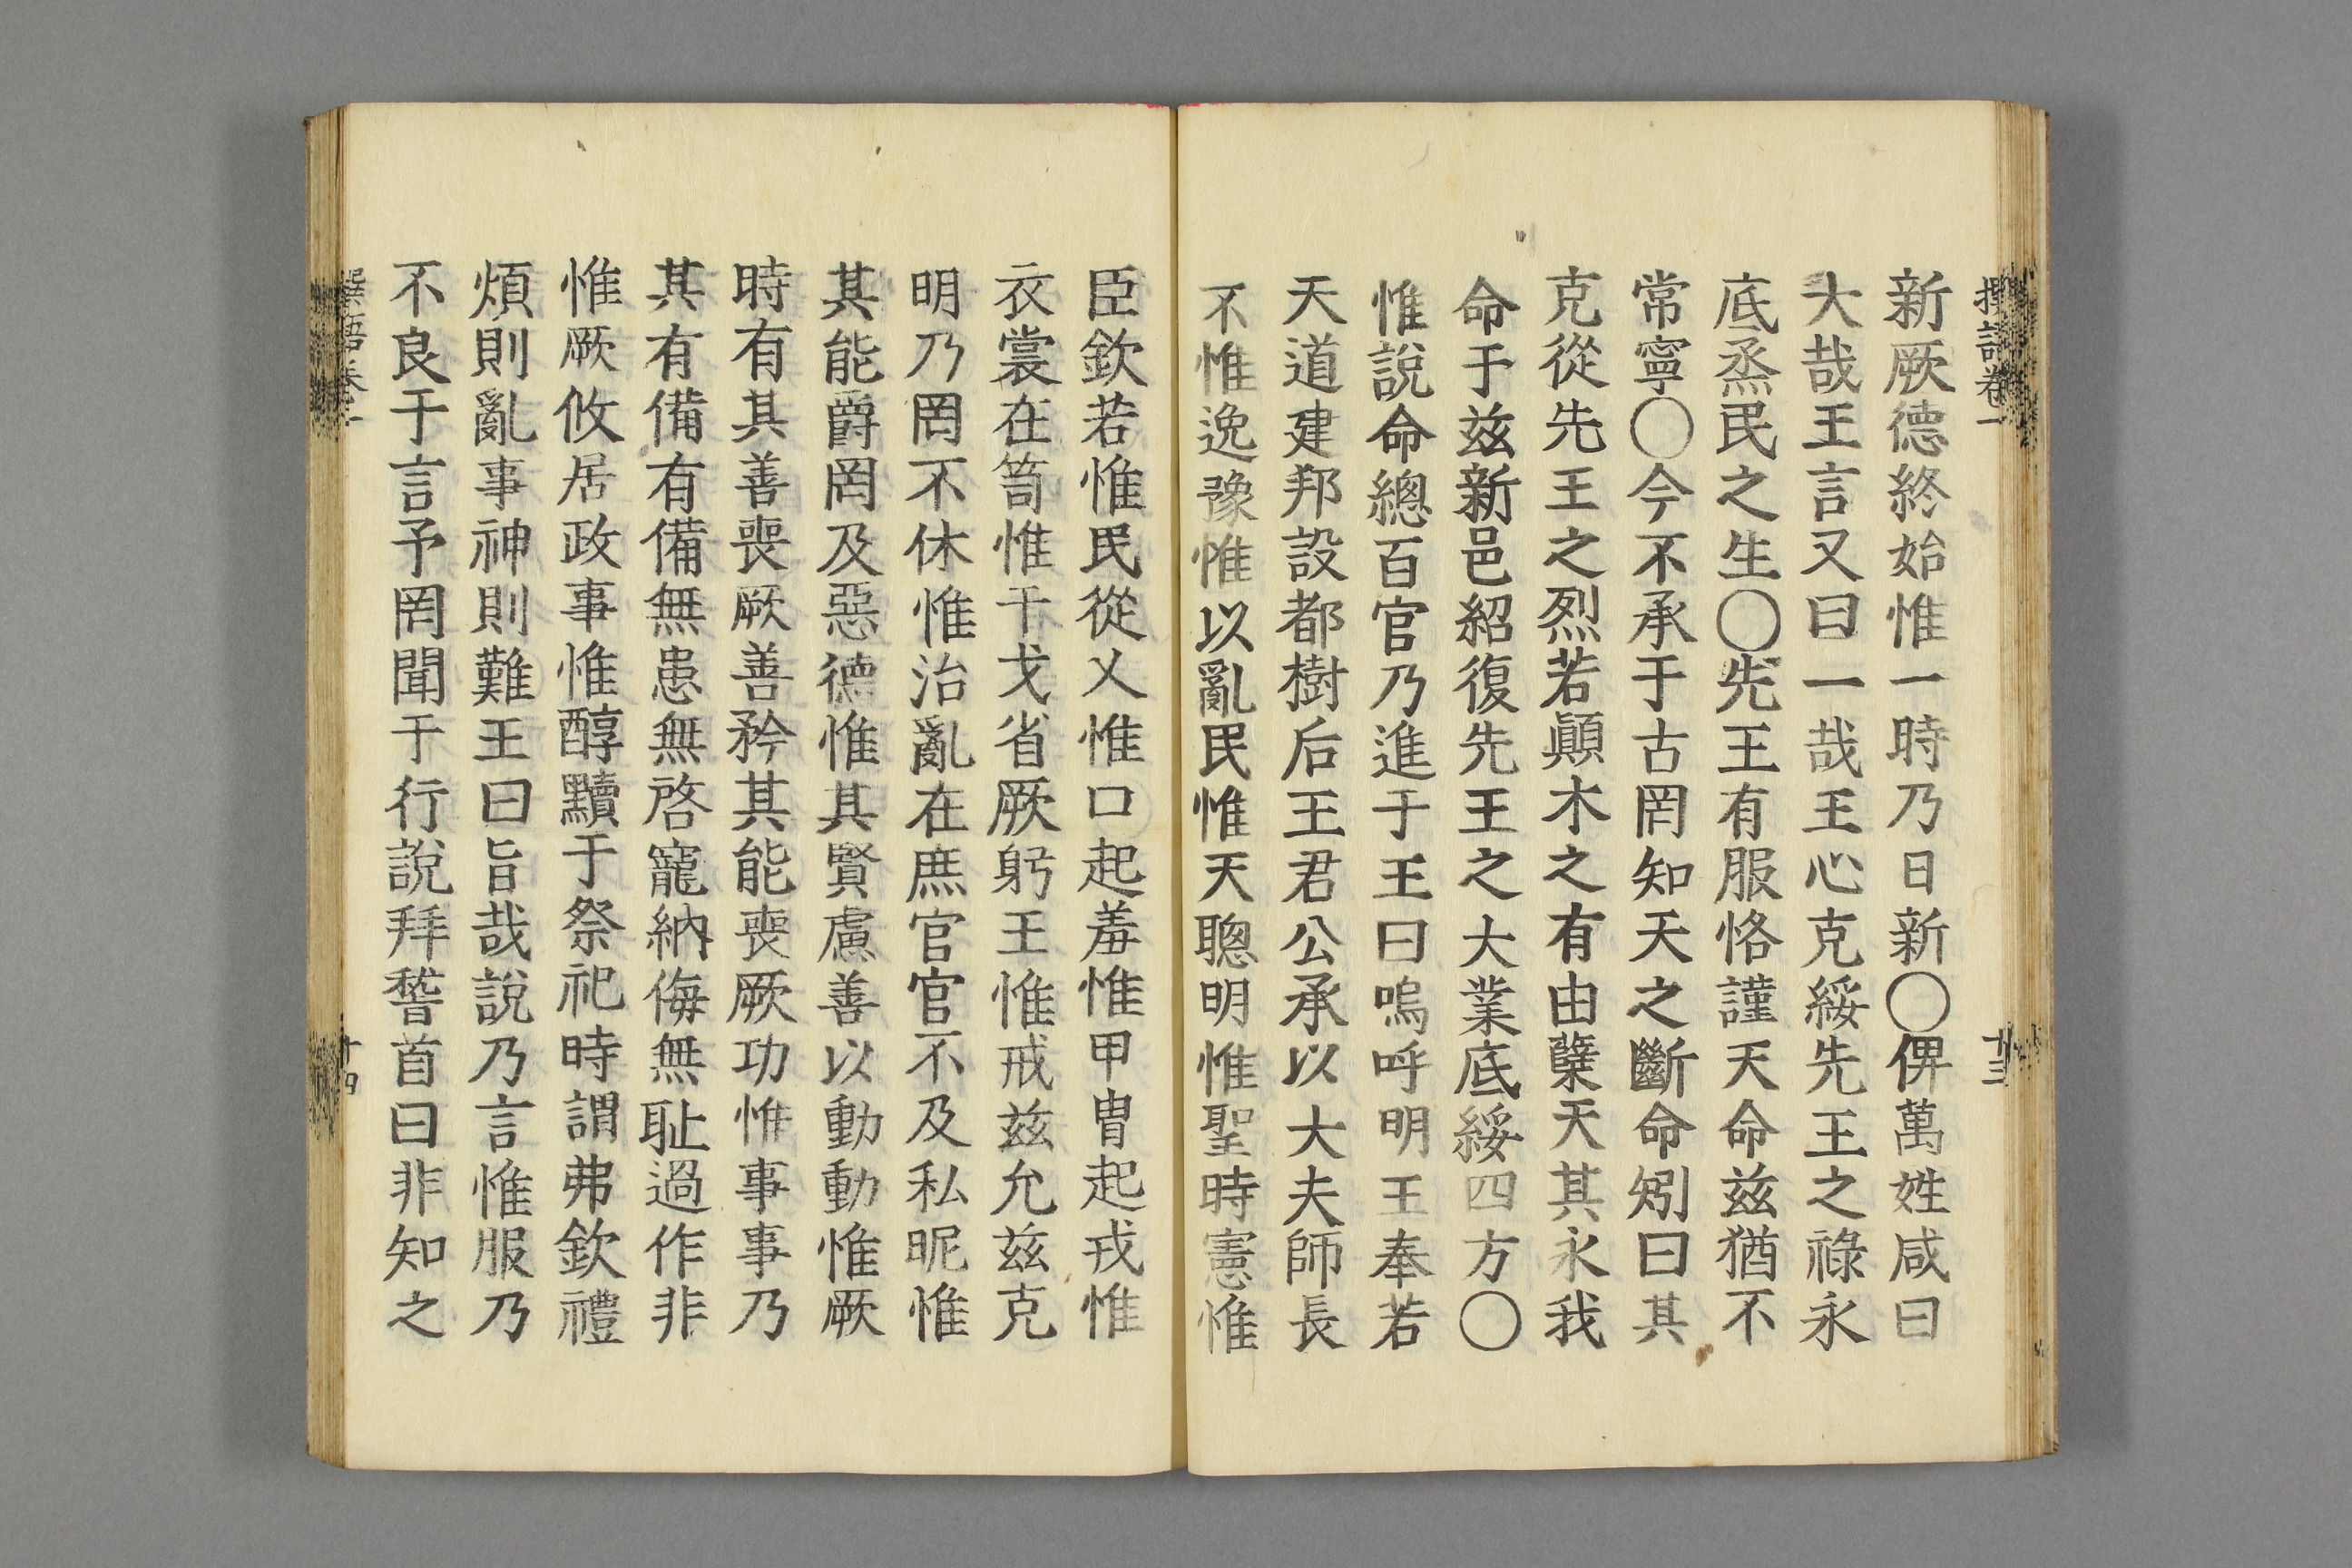 撰語卷一
十三
新厥德終始惟一時乃日新〇俾萬姓咸曰
大哉王言又曰一哉王心克綏先王之祿永
底烝民之生〇先王有服恪謹天命茲猶不
常寧〇今不承于古罔知天之斷命矧曰其
克從先王之烈若顚木之有由蘖天其永我
命于茲新邑紹復先王之大業底綏四方〇
惟說命總百官乃進于王曰嗚呼明王奉若
天道建邦設都樹后王君公承以大夫師長
不惟逸豫惟以亂民惟天聰明惟聖時憲惟
臣欽若惟民從乂惟口起羞惟甲冑起戎惟
衣裳在笥惟干戈省厥躬王惟戒茲允茲克
明乃罔不休惟治亂在庶官官不及私昵惟
其能爵罔及惡德惟其賢慮善以動動惟厥
時有其善喪厥善矜其能喪厥功惟事事乃
其有備有備無患無啓寵納侮無耻過作非
惟厥攸居政事惟醇黷于祭祀時謂弗欽禮
煩則亂事神則難王曰旨哉說乃言惟服乃
不良于言予罔聞于行說拜稽首曰非知之
撰語卷一
十四